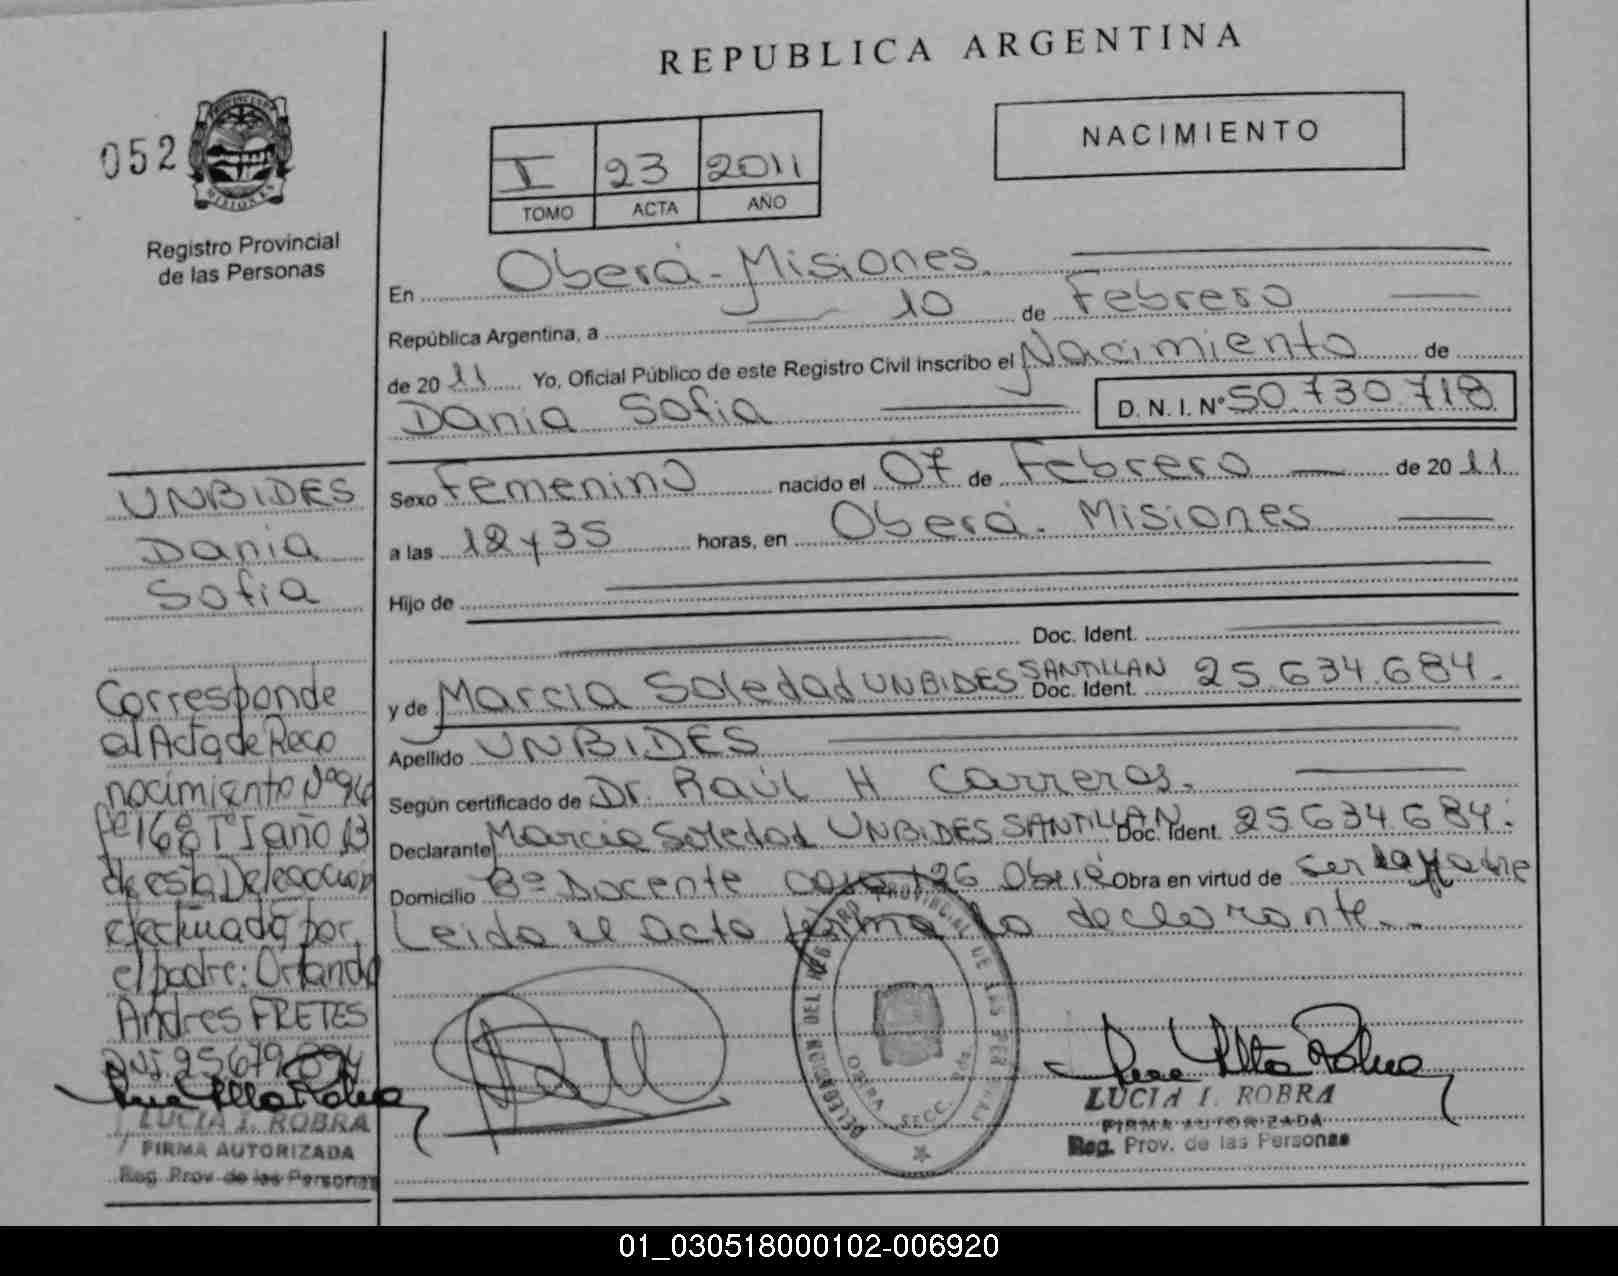 REPUBLICA ARGENTINA
052
PROVINCIA
MISIONES
Registro Provincial
de las Personas
I 23 2011
TOMO ACTA AÑO
NACIMIENTO
En Oberá - Misiones
República Argentina, a 10 de Febrero
de 2011 Yo, Oficial Público de este Registro Civil Inscribo el Nacimiento de
Dania Sofia D. N. I. Nº 50.730.718
Sexo Femenino nacido el 07 de Febrero de 2011
a las 12 y 35 horas, en Oberá. Misiones
Hijo de
Doc. Ident.
y de Marcia Soledad UNBIDES SANTILLAN Doc. Ident. 25.634.684.
Apellido UNBIDES
Según certificado de Dr. Raúl H Carreras.
Declarante Marcia Soledad UNBIDES SANTILLAN Doc. Ident. 25.634.684.
Domicilio Bº Docente casa 126 Oberá Obra en virtud de ser la Madre
Leida el acta firma la declarante.
UNBIDES
Dania
Sofia
Corresponde
al Acta de Reco
nocimiento Nº 94
Fº 168 Tº I año 13
de esta Delegacion
efectuado por
el padre: Orlando
Andres FRETES
DNI. 25679
LUCIA I. ROBRA
FIRMA AUTORIZADA
Reg. Prov. de las Personas
DELEGACION DEL REGISTRO PROVINCIAL DE LAS PERSONAS
OBERA SECC.
LUCIA I. ROBRA
FIRMA AUTORIZADA
Reg. Prov. de las Personas
01_030518000102-006920